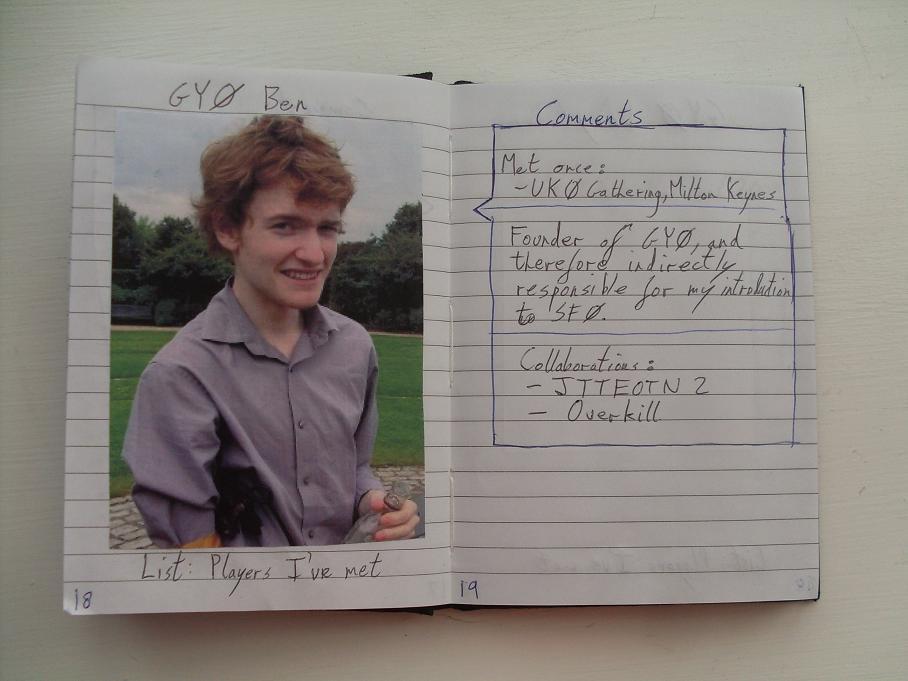 GYØ Ben
List: Players I've met
18
Comments
Met once:
- UKØ Gathering, Milton Keynes
Founder of GYØ, and
therefore indirectly
responsible for my introdution
to SFØ.
Collaborations:
- JTTEOTN 2
- Overkill
19